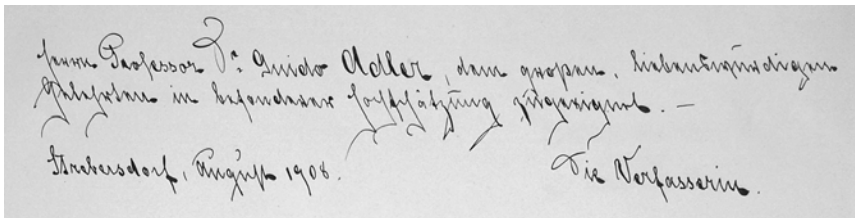 Herrn Professor Dr. Guido Adler, dem großen, liebenswürdigen
Gelehrten in besonderer Hochschätzung zugeeignet. —
Strebersdorf, August 1908. Die Verfasserin.